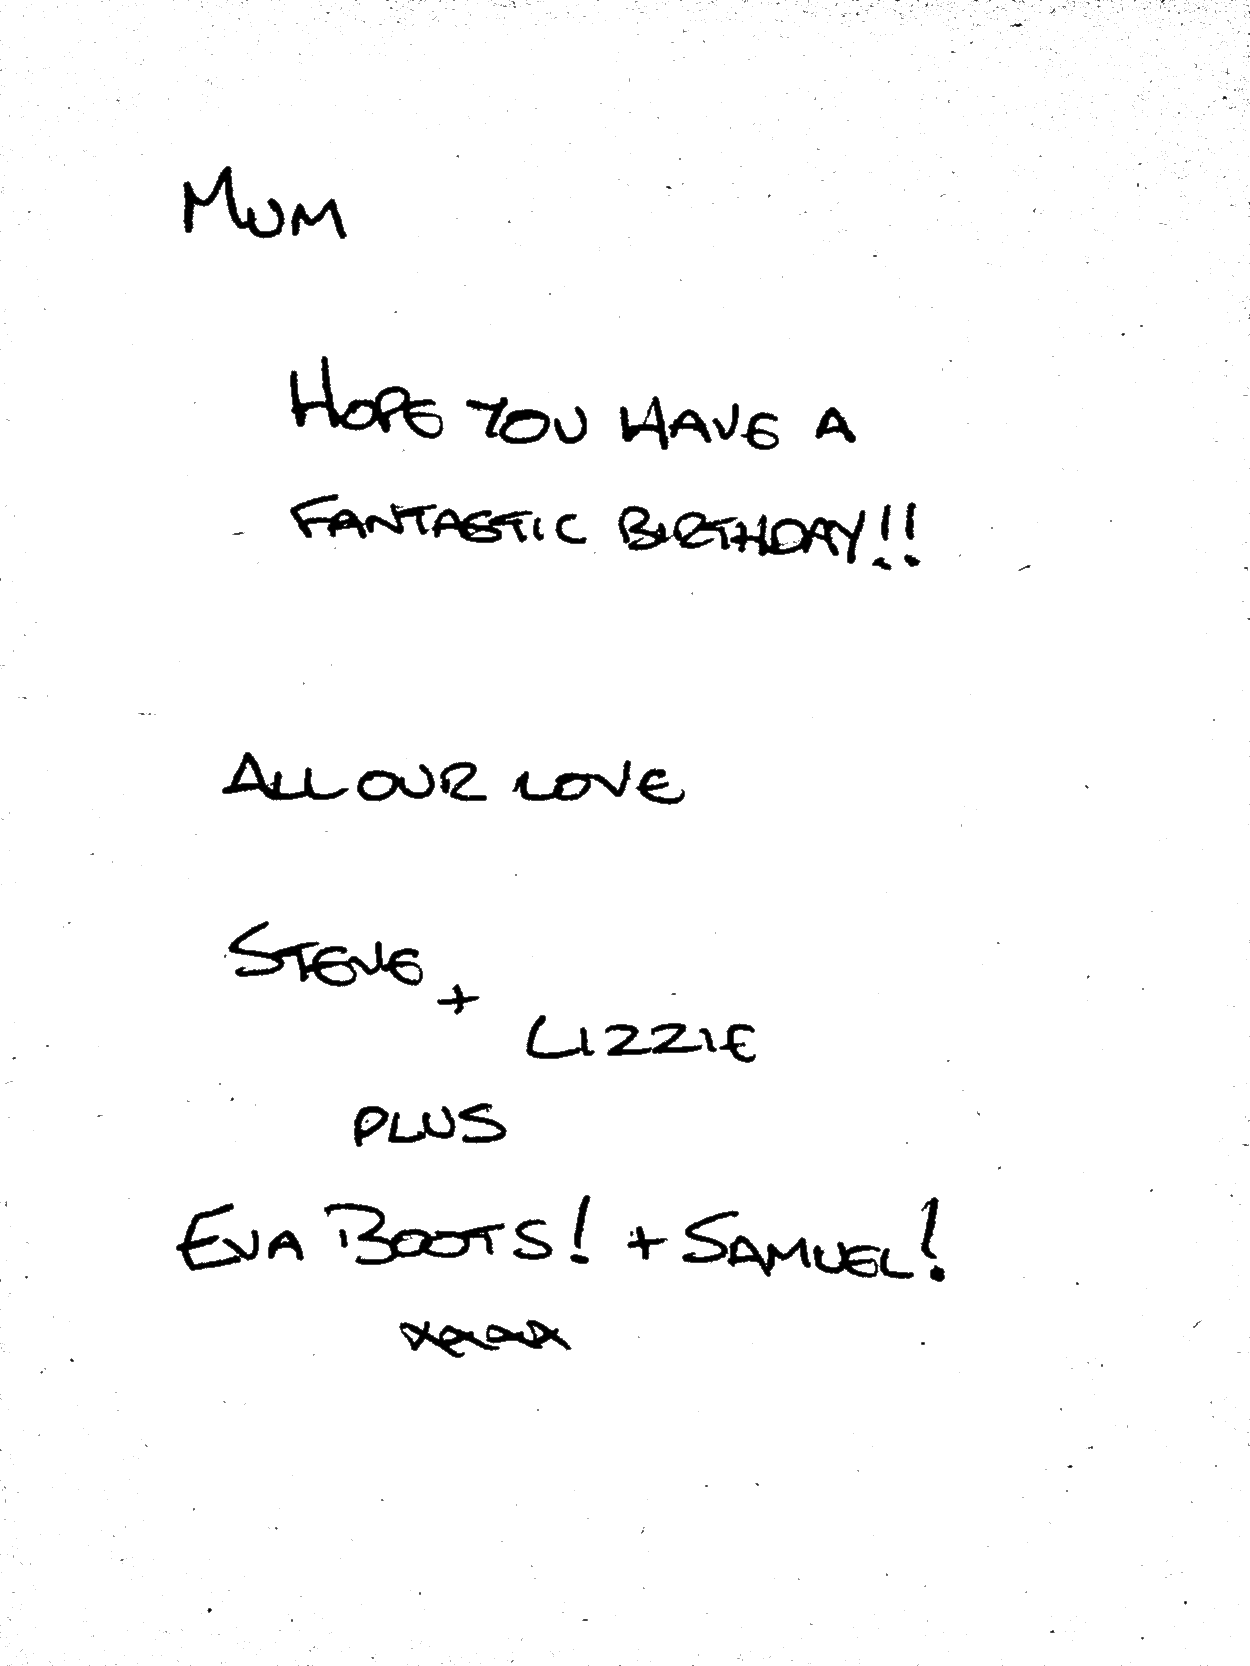 MUM
HOPE YOU HAVE A
FANTASTIC BIRTHDAY!!
ALL OUR LOVE
STEVE +
LIZZIE
PLUS
EVA BOOTS! + SAMUEL!
xxxx